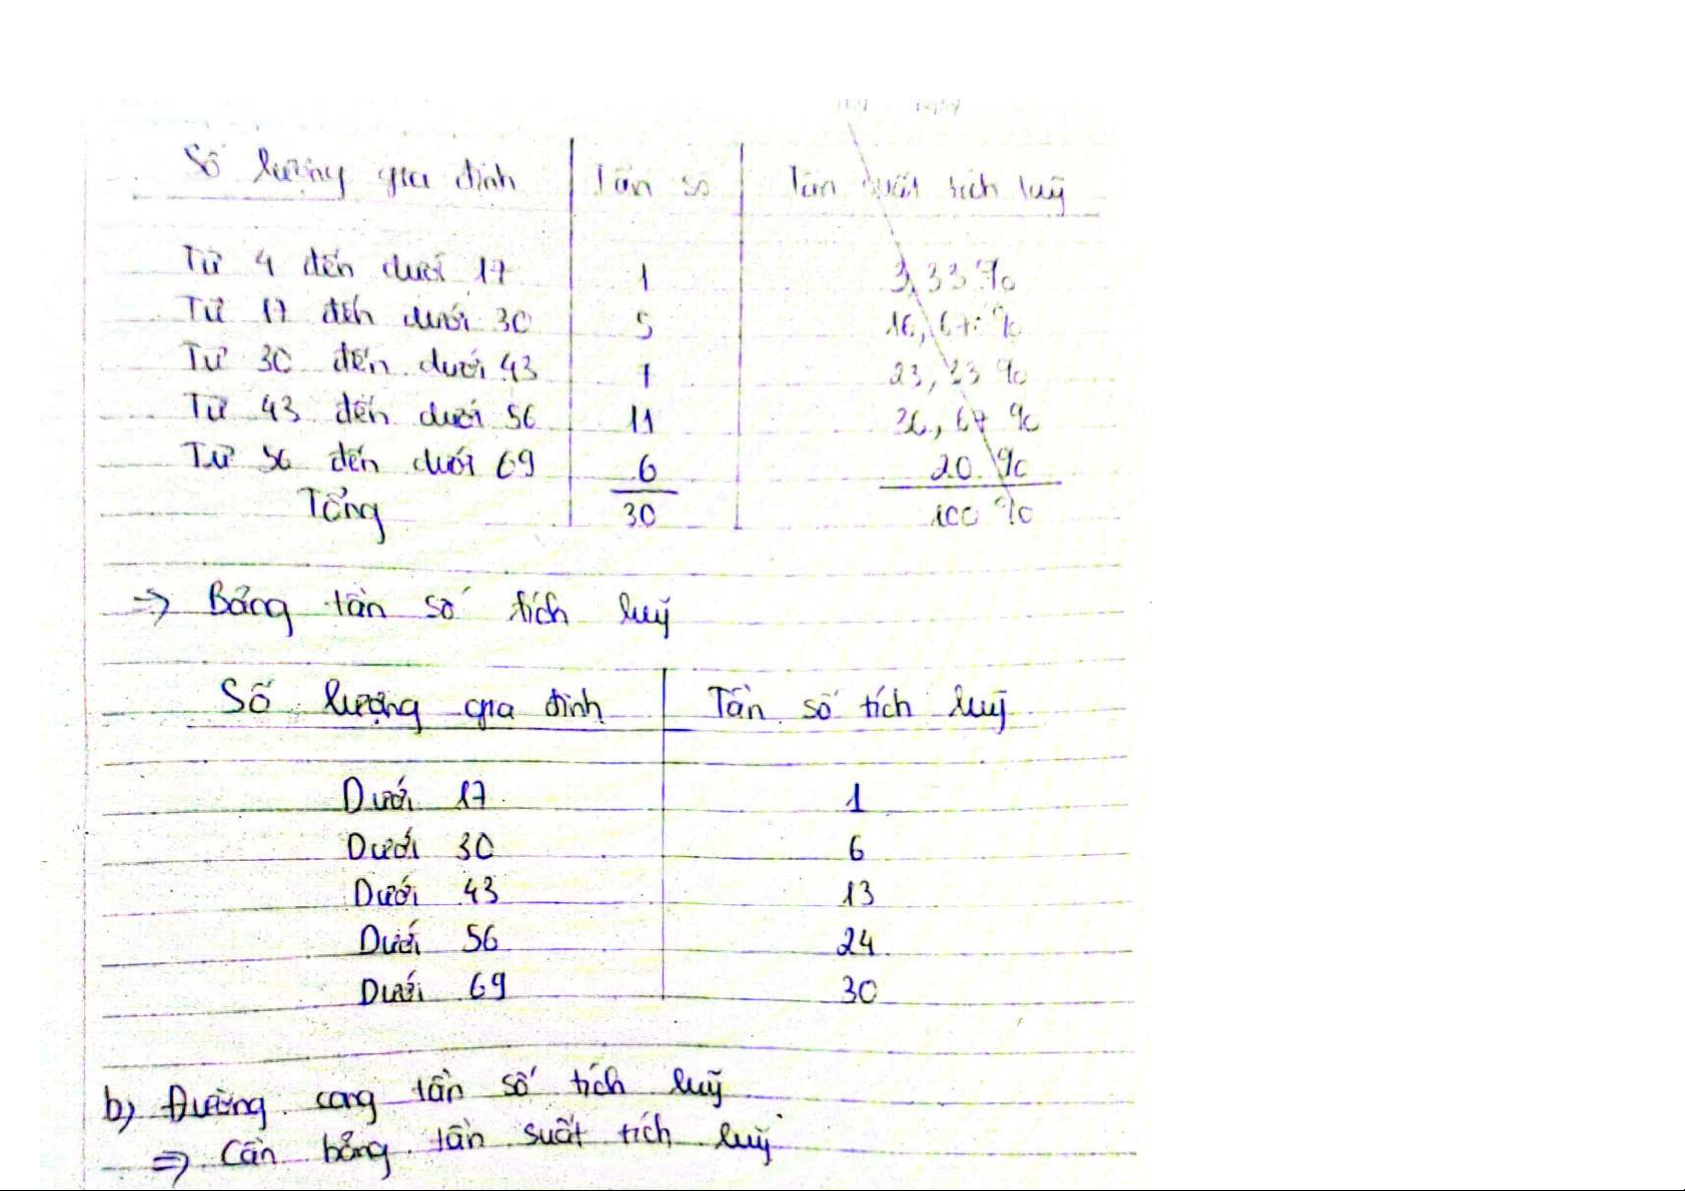 Số lượng gia đình Tần số Tần suất tích luỹ
Từ 4 đến dưới 17 1 3,33 %
Từ 17 đến dưới 30 5 16,67 %
Từ 30 đến dưới 43 7 23,33 %
Từ 43 đến dưới 56 11 36,67 %
Từ 56 đến dưới 69 6 20 %
Tổng 30 100 %
=> Bảng tần số tích luỹ
Số lượng gia đình Tần số tích luỹ
Dưới 17 1
Dưới 30 6
Dưới 43 13
Dưới 56 24
Dưới 69 30
b) Đường cong tần số tích luỹ
=> Cần bảng tần suất tích luỹ